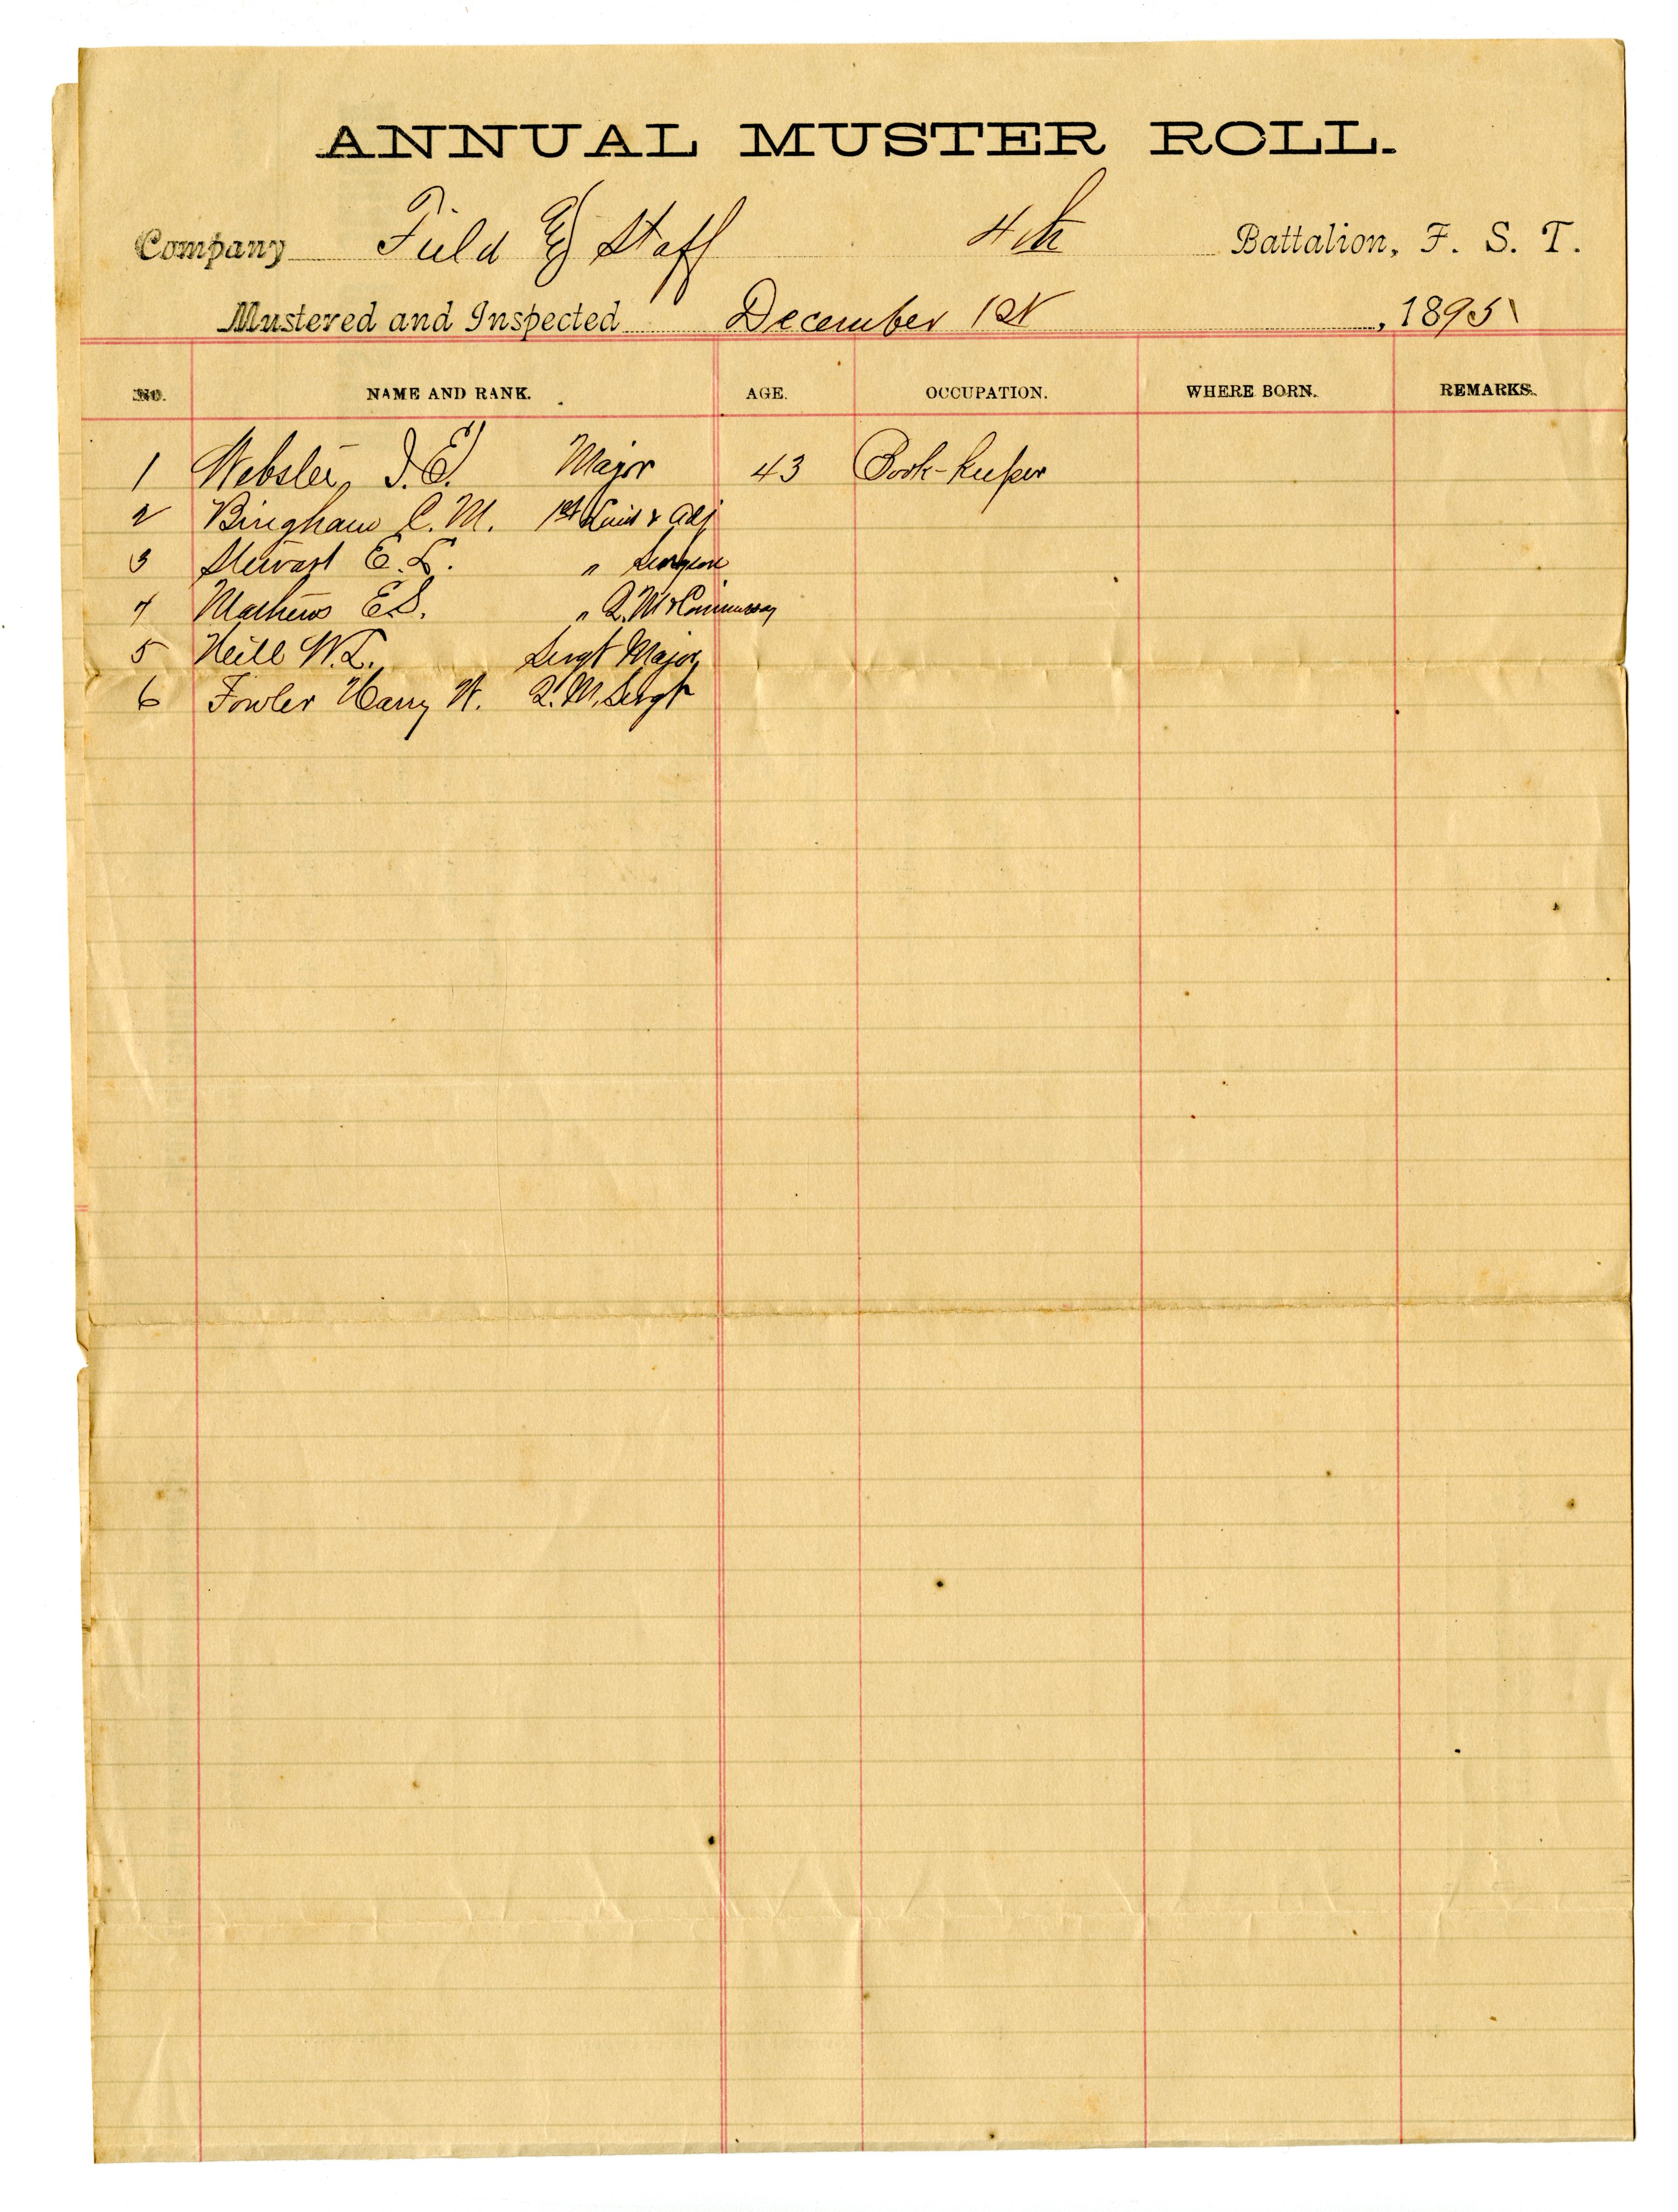 ANNUAL MUSTER ROLL.
Company Field & Staff 4th Battalion, F. S. T.
Mustered and Inspected December 1st, 1895
NO. NAME AND RANK. AGE. OCCUPATION. WHERE BORN. REMARKS.
1 Webster, I. E. Major 43 Book-keeper
2 Bingham C. M. 1st Lieut & Adj
3 Stewart E. L. " Surgeon
4 Mathews E.S. " Q.M & Commissary
5 Neill W. L. Sergt Major
6 Fowler Harry W. Q. M. Sergt